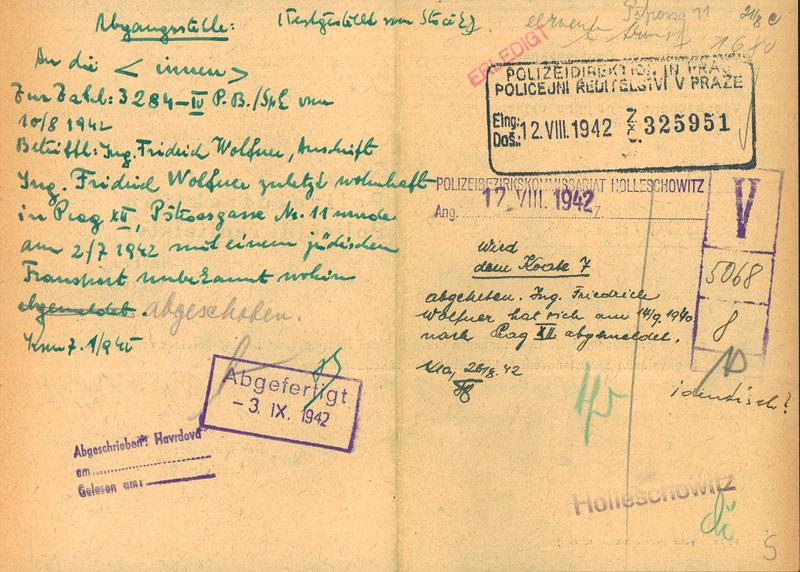 Abgangsstelle:
An die < innen >
Zur Zahl: 3284-IV P.B./SpE vom
10/8 1942
Betrifft: Ing. Fridrich Wolfner, Anschrift
Ing. Fridrich Wolfner zuletzt wohnhaft
in Prag XII, Pštrossgasse Nr. 11 wurde
am 2/7 1942 mit einem jüdischen
Transport unbekannt wohin
abgemeldet. abgeschoben.
Abgefertigt
- 3. IX. 1942
Abgeschrieben: Havrdová
am
Gelesen am:
(Festgestellt vom
Pštrossg 11
21/8
ERLEDIGT
POLIZEIDIREKTION IN PRAG
POLICEJNÍ ŘEDITELSTVÍ V PRAZE
Eing:
Došl: 12. VIII. 1942 Z. Č. 325951
POLIZEIBEZIRKSKOMMISSARIAT HOLLESCHOWITZ
Ang. 17. VIII. 1942 Z.
V
5068
8
Wird
dem Kreise 7
abgetreten. Ing. Friedrich
Wolfner hat sich am 14/9. 1940
nach Prag XII abgemeldet.
identisch?
Holleschowitz
5